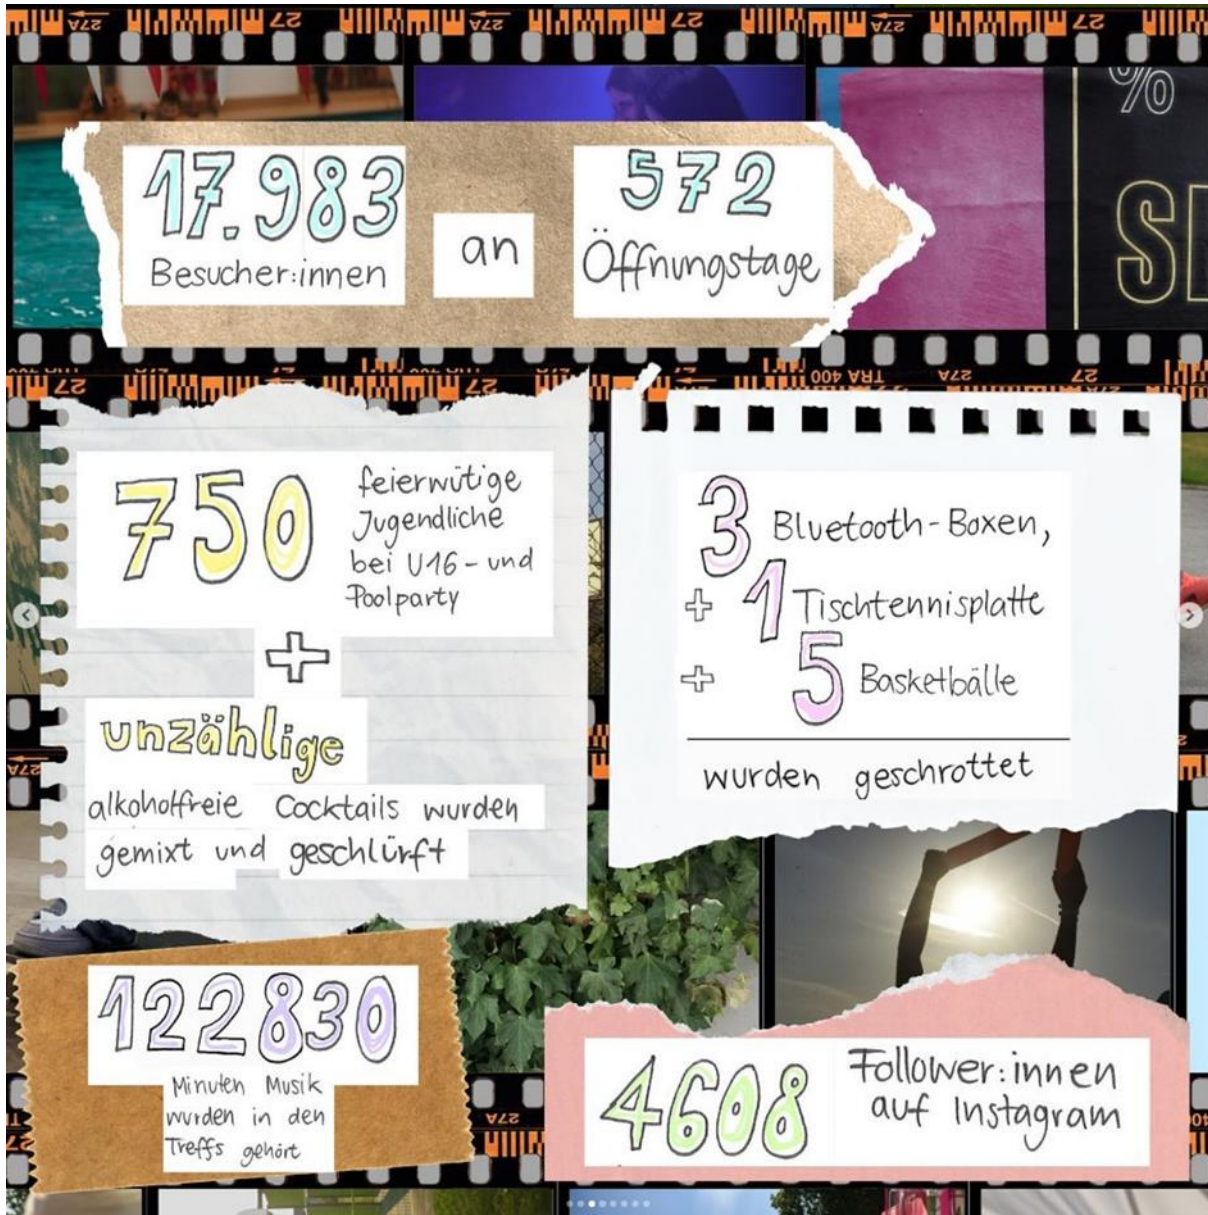 17.983
Besucher:innen
an
572
Öffnungstage
750
feierwütige
Jugendliche
bei U16- und
Poolparty
+
unzählige
alkoholfreie Cocktails wurden
gemixt und geschlürft
3 Bluetooth-Boxen,
+ 1 Tischtennisplatte
+ 5 Basketbälle
wurden geschrottet
122830
Minuten Musik
wurden in den
Treffs gehört
4608
Follower:innen
auf Instagram